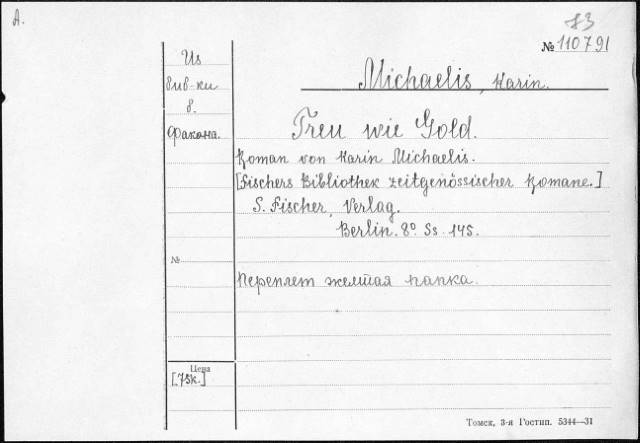 А.
83
№ 110791
Из
биб-ки
в.
Факона.
Michaelis, Karin.
Treu wie Gold.
Roman von Karin Michaelis.
[Fischers Bibliothek zeitgenössischer Romane.]
S. Fischer, Verlag.
Berlin. 8° Ss. 145.
№
Переплет желтая папка.
Цена
[75k.]
Томск, 3-я Гостип. 5344—31